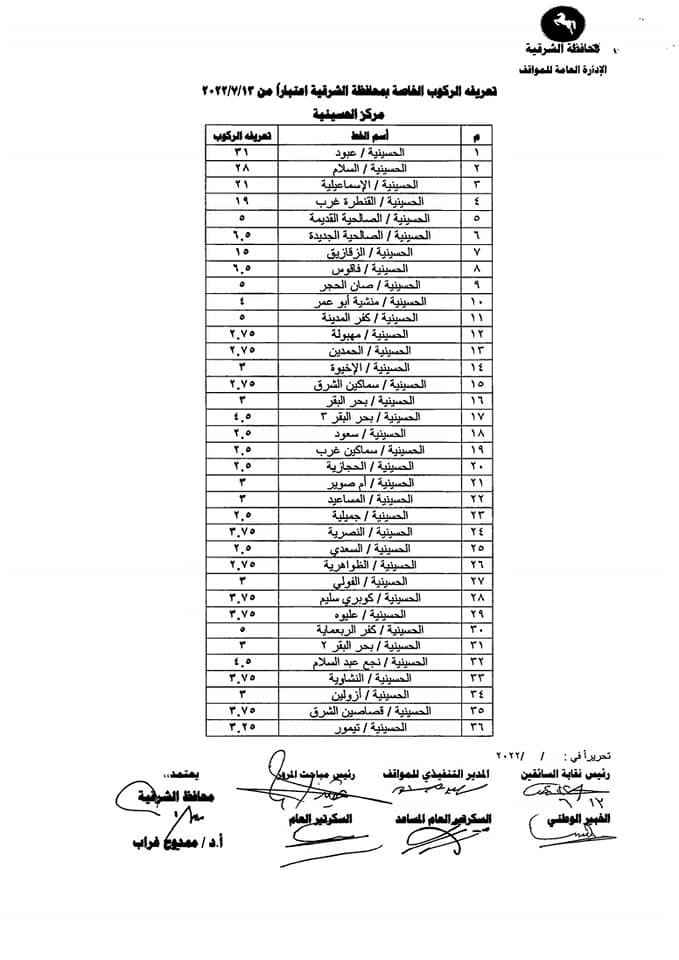 محافظة الشرقية
الإدارة العامة للمواقف
تعريفه الركوب الخاصة بمحافظة الشرقية اعتباراً من ٢٠٢٢/٧/١٣
مركز الحسينية
م أسم الخط تعريفه الركوب
١ الحسينية / عبود ٣١
٢ الحسينية / السلام ٢٨
٣ الحسينية / الإسماعيلية ٢١
٤ الحسينية / القنطرة غرب ١٩
٥ الحسينية / الصالحية القديمة ٥
٦ الحسينية / الصالحية الجديدة ٦,٥
٧ الحسينية / الزقازيق ١٥
٨ الحسينية / فاقوس ٦,٥
٩ الحسينية / صان الحجر ٥
١٠ الحسينية / منشية أبو عمر ٤
١١ الحسينية / كفر المدينة ٥
١٢ الحسينية / مهبولة ٢,٧٥
١٣ الحسينية / الحمدين ٢,٧٥
١٤ الحسينية / الإخيوة ٣
١٥ الحسينية / سماكين الشرق ٢,٧٥
١٦ الحسينية / بحر البقر ٣
١٧ الحسينية / بحر البقر ٣ ٤,٥
١٨ الحسينية / سعود ٢,٥
١٩ الحسينية / سماكين غرب ٢,٥
٢٠ الحسينية / الحجازية ٢,٥
٢١ الحسينية / أم صوير ٣
٢٢ الحسينية / المساعيد ٣
٢٣ الحسينية / جميلية ٢,٥
٢٤ الحسينية / النصرية ٣,٧٥
٢٥ الحسينية / السعدي ٢,٥
٢٦ الحسينية / الظواهرية ٢,٧٥
٢٧ الحسينية / الفولي ٣
٢٨ الحسينية / كوبري سليم ٣,٧٥
٢٩ الحسينية / عليوه ٣,٧٥
٣٠ الحسينية / كفر الربعماية ٥
٣١ الحسينية / بحر البقر ٢ ٣
٣٢ الحسينية / نجع عبد السلام ٤,٥
٣٣ الحسينية / النشاوية ٣,٧٥
٣٤ الحسينية / أزولين ٣
٣٥ الحسينية / قصاصين الشرق ٣,٧٥
٣٦ الحسينية / تيمور ٣,٢٥
تحريراً في : / / ٢٠٢٢
رئيس نقابة السائقين المدير التنفيذي للمواقف رئيس مباحث المرور يعتمد،،
محافظ الشرقية
الخبير الوطني السكرتير العام المساعد السكرتير العام
أ.د / ممدوح غراب